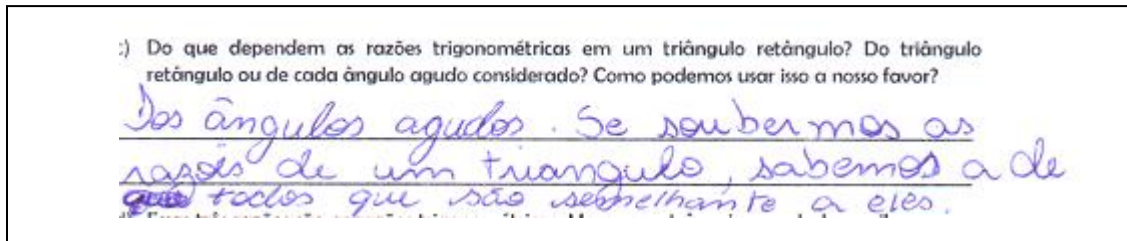 c) Do que dependem as razões trigonométricas em um triângulo retângulo? Do triângulo
retângulo ou de cada ângulo agudo considerado? Como podemos usar isso a nosso favor?
Dos ângulos agudos. Se soubermos as
razões de um triangulo, sabemos a de
todos que são semelhante a eles.